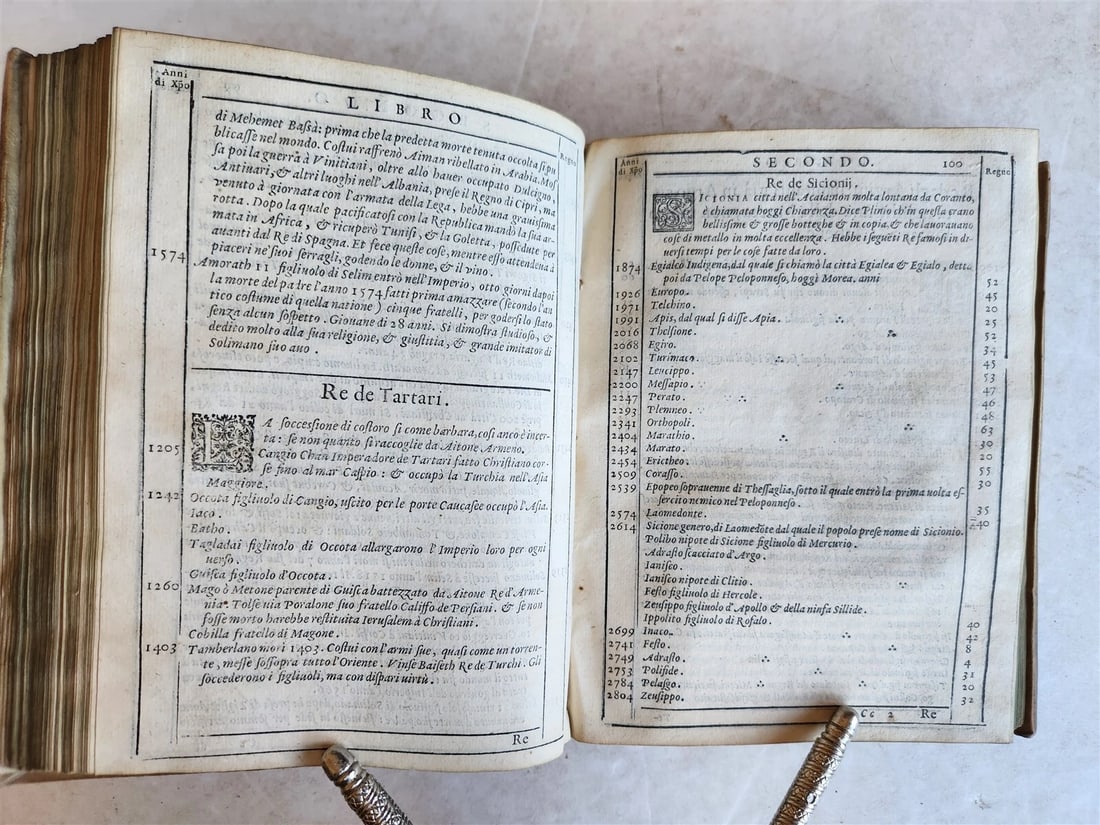 Anni
di Xpo
LIBRO
Regno
di Mehemet Bassà: prima che la predetta morte tenuta occolta si pu
blicasse nel mondo. Costui raffrenò Aiman ribellato in Arabia. Mos
sa poi la guerra à Vinitiani, oltre allo hauer occupato Dulcigno,
Antiuari, & altri luoghi nell'Albania, prese il Regno di Cipri, ma
venuto à giornata con l'armata della Lega, hebbe una grauissima
rotta. Dopo la quale pacificatosi con la Republica mandò la sua ar-
mata in Africa, & ricuperò Tunisi, & la Goletta, possedute per
auanti dal Re di Spagna. Et fece queste cose, mentre esso attendeua à
piaceri ne'suoi serragli, godendo le donne, & il vino.
1574 Amorath II figliuolo di Selim entrò nell'Imperio, otto giorni dapoi
la morte del padre l'anno 1574 fatti prima amazzare (secondo l'an
tico costume di quella natione) cinque fratelli, per godersi lo stato
senza alcun sospetto. Giouane di 28 anni. Si dimostra studioso, &
dedito molto alla sua religione, & giustitia, & grande imitator di
Solimano suo auo.
Re de Tartari.
LA soccessione di costoro si come barbara, cosi anco è incer-
ta: se non quanto si raccoglie da Aitone Armeno.
1205 Cangio Chan Imperadore de Tartari fatto Christiano cor-
se fino al mar Caspio: & occupò la Turchia nell'Asia
Maggiore.
1242 Occota figliuolo di Cangio, uscito per le porte Caucasee occupò l'Asia.
Iaco.
Batho.
Tagladai figliuolo di Occota allargarono l'Imperio loro per ogni
uerso.
Guisca figliuolo d'Occota.
1260 Mago ò Metone parente di Guisca battezzato da Aitone Re d'Arme-
nia. Tolse uia Poralone suo fratello Califfo de Persiani. & se non
fosse morto harebbe restituita Ierusalem à Christiani.
Cobilla fratello di Magone.
1403 Tamberlano morì 1403. Costui con l'armi sue, quasi come un torren-
te, messe sossopra tutto l'Oriente. Vinse Baiseth Re de Turchi. Gli
soccederono i figliuoli, ma con dispari uirtù.
Re
Anni
di Xpo
SECONDO. 100
Regno
Re de Sicionij.
SICIONIA città nell'Acaia: non molta lontana da Coranto,
è chiamata hoggi Chiarenza. Dice Plinio ch'in questa erano
bellissime & grosse botteghe & in copia, & che lauorauano
cose di metallo in molta eccellenza. Hebbe i segueti Re famosi in di-
uersi tempi per le cose fatte da loro.
1874 Egialco Indigena, dal quale si chiamò la città Egialea & Egialo, detta
poi da Pelope Peloponneso, hoggi Morea. anni 52
1926 Europo. 45
1971 Telchino. 20
1991 Apis, dal qual si disse Apia. 25
2016 Thelsione. 52
2068 Egiro. 34
2102 Turimaco. 45
2147 Leucippo. 53
2200 Messapio. 47
2247 Perato. 46
2293 Plemneo. 48
2341 Orthopoli. 63
2404 Marathio. 30
2434 Marato. 20
2454 Erictheo. 55
2509 Corasso. 30
2539 Epopeo soprauenne di Thessaglia, sotto il quale entrò la prima uolta es-
sercito nemico nel Peloponneso. 35
2574 Laomedonte. 40
2614 Sicione genero, di Laomedōte dal quale il popolo prese nome di Sicionio.
Polibo nipote di Sicione figliuolo di Mercurio.
Adrasto scacciato d'Argo.
Ianisco.
Ianisco nipote di Clitio.
Festo figliuolo di Hercole.
Zeusippo figliuolo d'Apollo & della ninfa Sillide.
Ippolito figliuolo di Rofalo.
2699 Inaco. 40
2741 Festo. 42
2749 Adrasto. 8
2753 Polifide. 4
2784 Pelasgo. 31
2804 Zeusippo. 20
32
Cc 2 Re